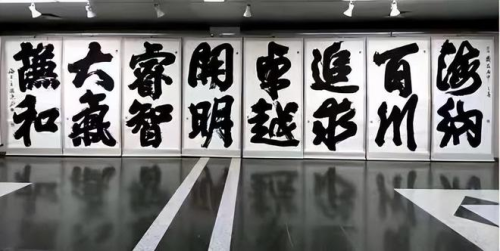 海納
百川
追求
卓越
開明
睿智
大氣
謙和